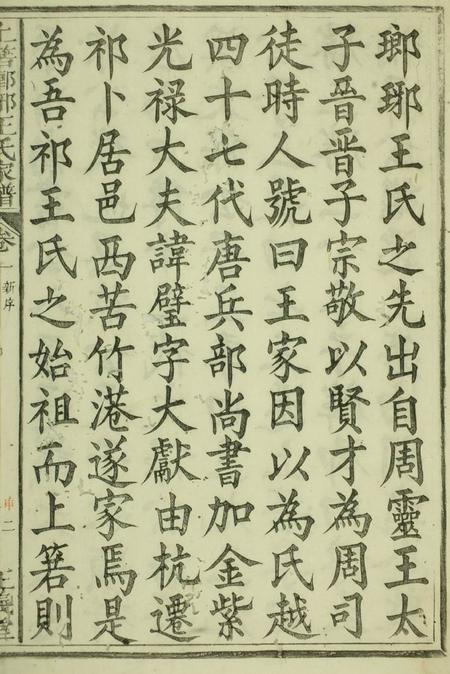 瑯琊王氏之先出自周靈王太
子晉晉子宗敬以賢才為周司
徒時人號曰王家因以為氏越
四十七代唐兵部尚書加金紫
光祿大夫諱璧字大獻由杭遷
祁卜居邑西苦竹港遂家焉是
為吾祁王氏之始祖而上箬則
上箬瑯琊王氏家譜
卷一
新序
二